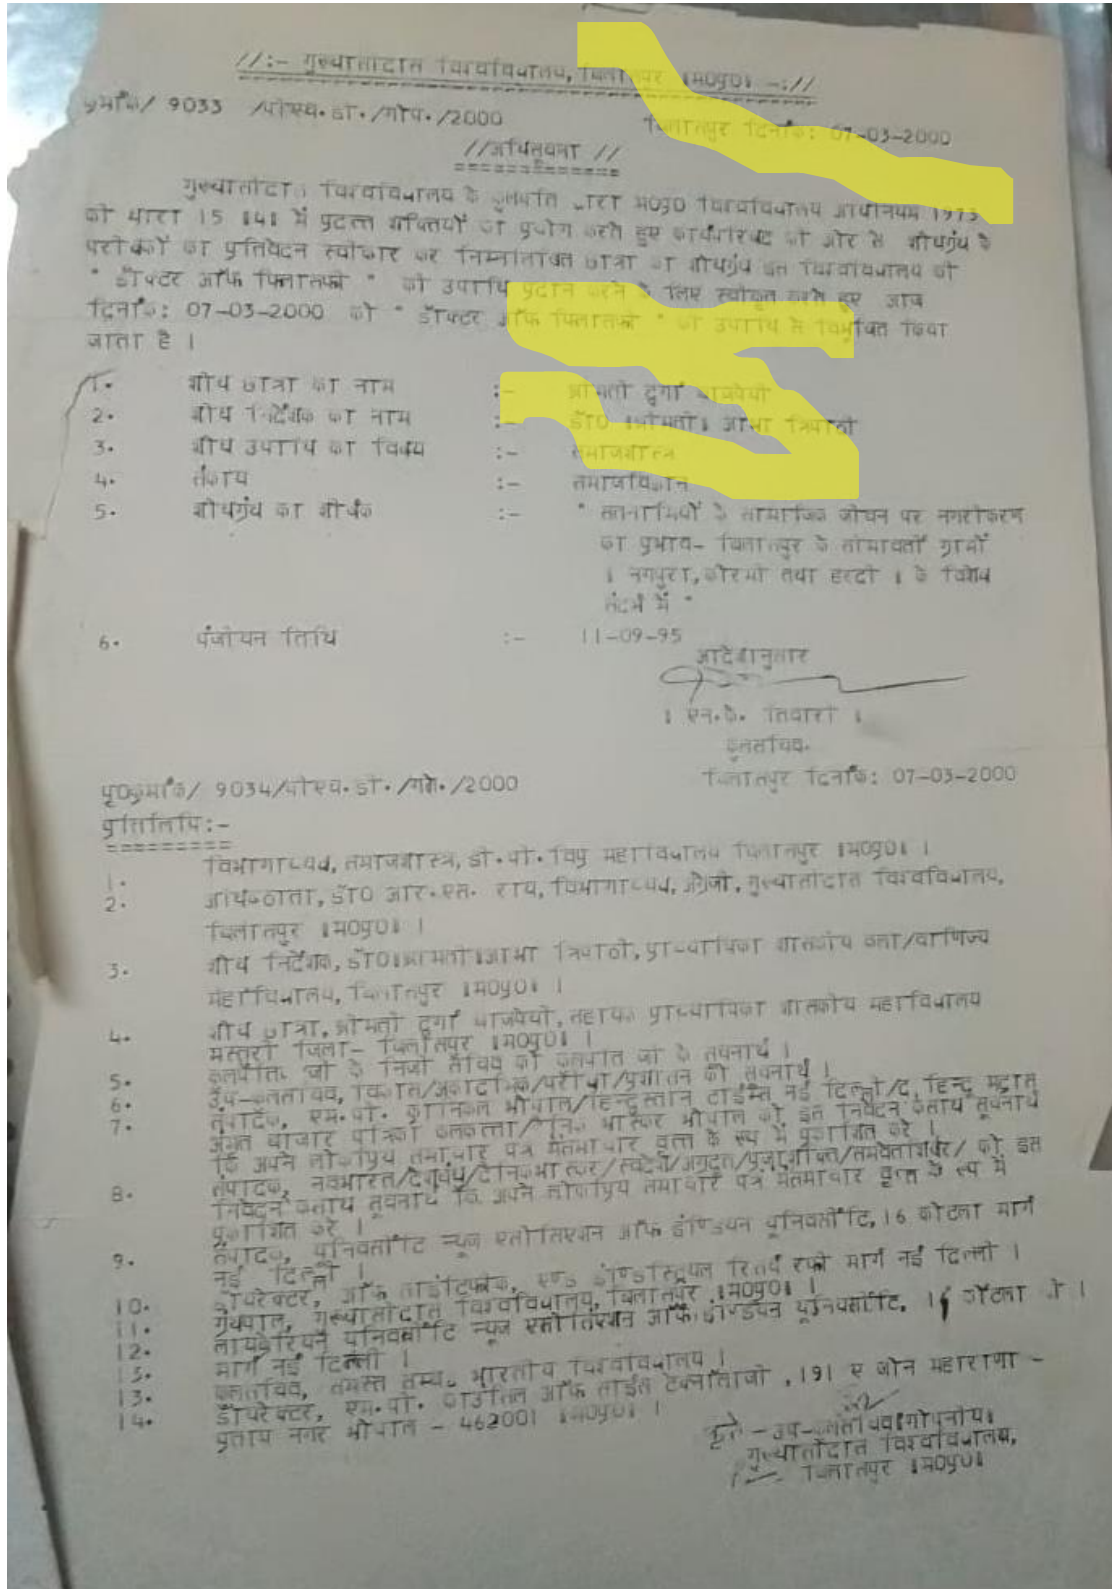 //:- गुरुघासीदास विश्वविद्यालय, बिलासपुर ॥म०प्र०॥ -://
क्रमांक/ 9033 /पीएच.डी./गोप./2000 बिलासपुर दिनांक: 07-03-2000
//अधिसूचना //
गुरुघासीदास विश्वविद्यालय के कुलपति द्वारा म०प्र० विश्वविद्यालय अधिनियम 1973
की धारा 15 ॥4॥ में प्रदत्त शक्तियों का प्रयोग करते हुए कार्यपरिषद की ओर से शोधग्रंथ के
परीक्षकों का प्रतिवेदन स्वीकार कर निम्नलिखित छात्रा का शोधग्रंथ इस विश्वविद्यालय की
" डॉक्टर ऑफ फिलासफी " की उपाधि प्रदान करने के लिए स्वीकृत करते हुए आज
दिनांक: 07-03-2000 को " डॉक्टर ऑफ फिलासफी " की उपाधि से विभूषित किया
जाता है ।
1. शोध छात्रा का नाम :- श्रीमती दुर्गा बाजपेयी
2. शोध निर्देशक का नाम :- डॉ0 ॥श्रीमती॥ आभा त्रिपाठी
3. शोध उपाधि का विषय :- समाजशास्त्र
4. संकाय :- समाजविज्ञान
5. शोधग्रंथ का शीर्षक :- " सतनामियों के सामाजिक जीवन पर नगरीकरण
का प्रभाव- बिलासपुर के सीमावर्ती ग्रामों
॥ नगपुरा, कोरमी तथा हरदी ॥ के विशेष
संदर्भ में "
6. पंजीयन तिथि :- 11-09-95
आदेशानुसार
॥ एन.के. तिवारी ॥
कुलसचिव.
पृ०क्रमांक/ 9034/पीएच.डी./गो./2000 बिलासपुर दिनांक: 07-03-2000
प्रतिलिपि:-
1. विभागाध्यक्ष, समाजशास्त्र, डी.पी. विप्र महाविद्यालय बिलासपुर ॥म०प्र०॥ ।
2. अधिष्ठाता, डॉ0 आर.एस. राय, विभागाध्यक्ष, अंग्रेजी, गुरुघासीदास विश्वविद्यालय,
बिलासपुर ॥म०प्र०॥ ।
3. शोध निर्देशक, डॉ0॥श्रीमती॥आभा त्रिपाठी, प्राध्यापिका शासकीय कला/वाणिज्य
महाविद्यालय, बिलासपुर ॥म०प्र०॥ ।
4. शोध छात्रा, श्रीमती दुर्गा बाजपेयी, सहायक प्राध्यापिका शासकीय महाविद्यालय
मस्तुरी जिला- बिलासपुर ॥म०प्र०॥ ।
5. कुलपति जी के निजी सचिव को कुलपति जी के सूचनार्थ ।
6. उप-कुलसचिव, विकास/अकादमिक/परीक्षा/प्रशासन को सूचनार्थ ।
7. संपादक, एम.पी. क्रानिकल भोपाल/हिन्दुस्तान टाईम्स नई दिल्ली/द हिन्दू मद्रास
अमृत बाजार पत्रिका कलकत्ता/दैनिक भास्कर भोपाल को इस निवेदन के साथ सूचनार्थ
कि अपने लोकप्रिय समाचार पत्र में समाचार वृत्त के रूप में प्रकाशित करे ।
8. संपादक, नवभारत/देशबंधु/दैनिकभास्कर/स्वदेश/अग्रदूत/युगधर्म/समवेतशिखर/ को इस
निवेदन के साथ सूचनार्थ कि अपने लोकप्रिय समाचार पत्र में समाचार वृत्त के रूप में
प्रकाशित करे ।
9. संपादक, यूनिवर्सिटि न्यूज एसोसिएशन ऑफ इंण्डियन यूनिवर्सिटि, 16 कोटला मार्ग
नई दिल्ली ।
10. डायरेक्टर, ऑफ साइंटिफीक, एण्ड इंण्डस्ट्रियल रिसर्च रफी मार्ग नई दिल्ली ।
11. ग्रंथपाल, गुरुघासीदास विश्वविद्यालय, बिलासपुर ॥म०प्र०॥ ।
12. लायब्रेरियन यूनिवर्सिटि न्यूज एसोसिएशन ऑफ इंण्डियन यूनिवर्सिटि, 16 कोटला
मार्ग नई दिल्ली ।
13. कुलसचिव, समस्त भारतीय विश्वविद्यालय ।
14. डॉयरेक्टर, एम.पी. काउंसिल ऑफ साईंस टेक्नॉलाजी , 191 ए जोन महाराणा -
प्रताप नगर भोपाल - 462001 ॥म०प्र०॥ ।
कृते - उप-कुलसचिव॥गोपनीय॥
गुरुघासीदास विश्वविद्यालय,
बिलासपुर ॥म०प्र०॥